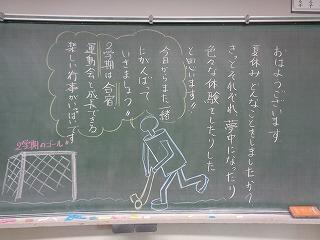 おはようございます
夏休み どんなことをしましたか?
きっとそれぞれ 夢中になったり
色々な体験をしたりした
と思います!!
今日からまた、一緒
にがんばって
いきましょう!!
2学期は合宿
運動会と成長できる
楽しい行事がいっぱいです
2学期のゴール!!